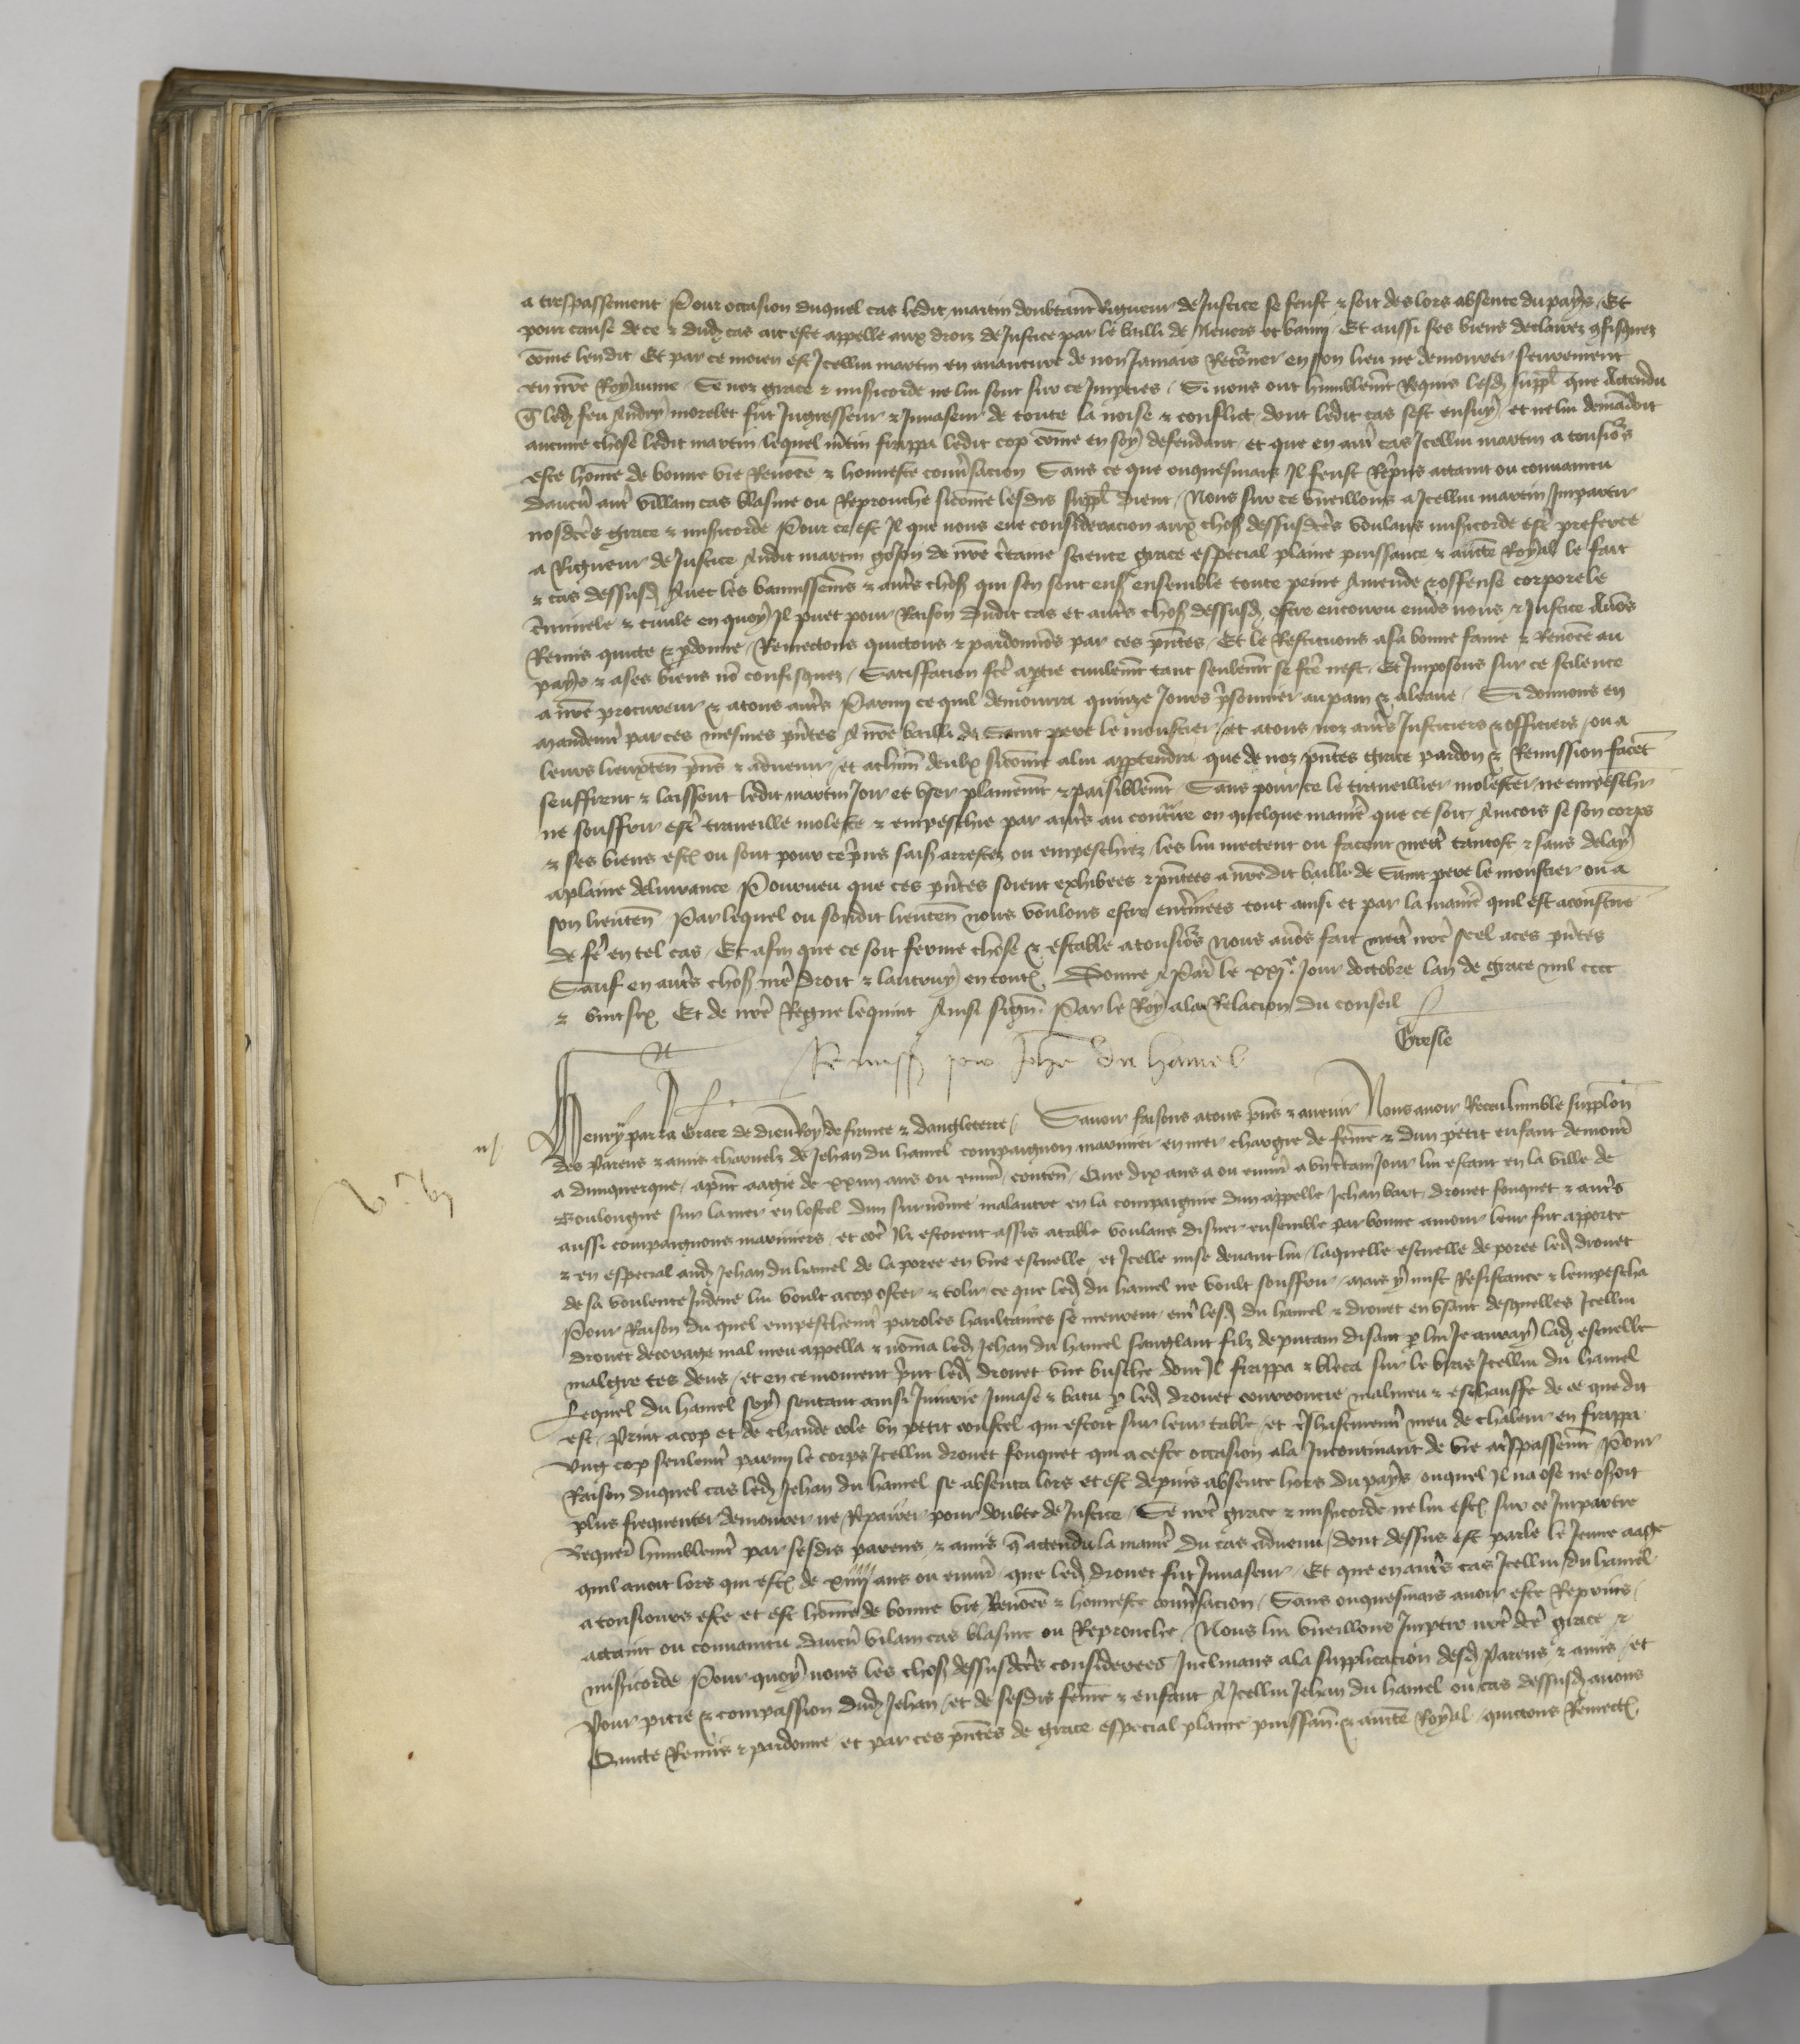 a trespassement Pour occasion duquel cas ledit martin doubtant Rigueur de Justice se feust & soit deslors absente du pays Et
pour cause de ce & dud cas ait este appelle aux droiz de Justice par le bailli de Nevers et banny Et aussi ses biens declairez confisquez
cõme lendit Et par ce moien est Jcellui martin en avanture de non Jamais Retõner en son lieu ne demourer seurement
en nr̃e Royaume Se noz grace & miscorde ne lui sont sur ce Jmpties Si nous ont humblemt Requis lesd suppl que Attendu
q̃ led feu Andry morelet fut Jngresseur & Jnvaseur de toute la noise & conflict dont ledit cas sest ensuy et ne lui demãdoit
aucune chose ledit martin lequel mtin frappa ledit cop cõme en soy defendant et que en autr cas Jcellui martin a tousiõs
este hõme de bonne vie Renõee & honneste convsacion Sans ce que onquesmais Jl feust Repns attaint ou convaincu
daucũ autr villain cas blasme ou Reprouche sicõme lesdis suppl dient Nous sur ce vueillons a Jcellui martin Jmpartir
nosdtes grace & miscorde Pour ce est Jl que nous eue consideracion aux chos dessusdtes voulans miscorde estr preferee
a Rigueur de Justice Audit martin goson de nr̃e ctaine science grace especial plaine puissance & aucte Royal le fait
& cas dessusd Avec les bannissemens & autrs chos qui sen sont ens ensemble toute peine Amende & offense corporele
cminele & civile en quoy Jl puet pour Raison dudit cas et autrs chos dessusd estre encouru envs nous & Justice Avõs
Remis quicte & pdonne Remectons quictons & pardonnõs par ces pntes Et le Restituons a sa bonne fame & Renõee au
pays & a ses biens nõ confisquez Satisfacion fcte a ptie civilemt tant seulemt se fcte nest Et Jmposons sur ce scilence
a nr̃e procureur & a tous autrs Parmy ce quil demourra quinze Jours psonnier au pain & a leaue Si donnons en
mandemt par ces mesmes pntes A nr̃e bailli de Saint pere le moustier et a tous noz autrs Justiciers & officiers ou a
leurs lieuxten pns & advenir et a chũn deulx sicõme a lui apptendra que de noz pntes grace pardon & Remission facet
seuffrent & laissent ledit martin Joir et user plainemt & paisiblemt Sans pour ce le traveillier molester ne empeschr
ne souffrir estr traveille moleste & empeschie par autrs au contre en quelque manie que ce soit Aincois se son corps
& ses biens est ou sont pour ce pns sais arrestez ou empeschiez les lui mectent ou facent mectr tantost & sans delay
a plaine delivrance Pourveu que ces pntes soient exhibees & pntees a nr̃edit bailli de Saint pere le moustier ou a
son lieuten Par lequel ou sondit lieuten nous voulons estre entines tout ainsi et par la manie quil est acoustume
de fe en tel cas Et afin que ce soit ferme chose & estable a tousiõs nous avõs fait mectr nr̃e seel a ces pntes
Sauf en autrs chos nr̃e droit & lautruy en tout Donne A Par le xxj.e Jour doctobre lan de grace mil cccc
& vint six Et de nr̃e Regne le quint Ainsi sign Par le Roy a la Relacion du conseil
Gresle
Remiss pro Johe du hamel
Henry par la Grace de dieu Roy de france & dangleterre Savoir faisons a tous pns & avenir Nous avoir Receu humble supplon
des Parens & amis charnelz de Jehan du hamel compaignon marinier en mer chargie de feme & dun petit enfant demour
a dunquerque apnt aagie de xxiiij ans ou envir conten Que dix ans a ou envir a un ctain Jour lui estant en la ville de
Boulongne sur la mer en lostel dun surnõme malautre en la compaignie dun appelle Jehan bart drouet fouquet & autrs
aussi compaignons mariniers et cõe Jlz estoient assis a table voulans disner ensemble par bonne amour leur fut apporte
& en especial aud Jehan du hamel de la poree en une escuelle et Jcelle mise devant lui laquelle escuelle de poree led drouet
de sa voulente Jndeue lui voult a cop oster & tolir ce que led du hamel ne voult souffrir mais y mist Resistance & lempescha
Pour Raison du quel empeschemt paroles haultaines se meurent entr lesd du hamel & drouet en usant desquelles Jcellui
drouet de corage mal meu appella & nõma led Jehan du hamel sanglant filz de putain disant p lui Je auray lad escuelle
malgre tes dens et en ce moment print led drouet une busche dont Jl frappa & bleca sur le bras Jcellui du hamel
Lequel du hamel soy sentant ainsi Jniurie Jnvase & batu p led drouet courroucie malmeu & eschauffe de ce que dit
est Print a cop et de chaude cole un petit coustel qui estoit sur leur table et tshastivemt meu de chaleur en frappa
Ung cop seulemt parmy le corps Jcellui drouet fouquet qui a ceste occasion ala Jncontinant de vie a trspassemt Pour
Raison duquel cas led Jehan du hamel se absenta lors et est depuis absente hors du pays ouquel Jl na ose ne oseroit
plus frequenter demourer ne Repairer pour doubte de Justice Se nr̃e grace & miscorde ne lui est sur ce Jmpartie
Requer humblemt par sesdis parens & amis q̃ attendu la manie du cas advenu dont dessus est parle le Jeune aage
quil avoit lors qui est de xiiij ans ou envir que led drouet fut Jnvaseur Et que en autrs cas Jcellui du hamel
a tousiours este et est hõme de bonne vie Renõee & honneste convsacion Sans onquesmais avoir este Reprins
attaint ou convaincu daucũ vilain cas blasme ou Reprouche Nous lui vueillons Jmptir nr̃e dte grace &
miscorde Pour quoy nous les chos dessusdtes considerees Jnclinans a la supplicacion desd Parens & amis et
Pour pitie & compassion dud Jehan et de sesdis feme & enfant A Jcellui Jehan du hamel ou cas dessusd avons
Quicte Remis & pardonne et par ces pntes de grace especial plaine puissan & aucte Royal quictons Remect